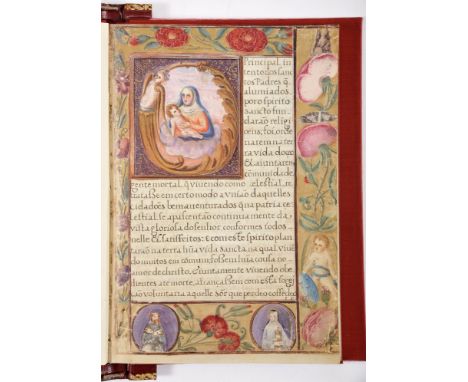 Principal, in
tento dos sanc
tos Padres q̃
alumiados
poro spirito
sancto fun
darão religi
oens, foi, orde
narem na ter
ra vida do ce
aiuntarem
comunidade
gente mortal, q̃ vivendo como celestial, re
tratasse em certo modo a união daquelles
cidadões bemaventurados que na patria ce
lestial se apascentão continuamente da
vista gloriosa do senhor conformes todos
nelle sanctos: com este spirito plan
tarão na terra hũa vida sancta na qual viven
do muitos em commum fossem hũa cousa no
amor de christo, & iuntamente vivendo obe
dientes ate morte, alcançassem com esta
voluntaria aquelle que perdeo